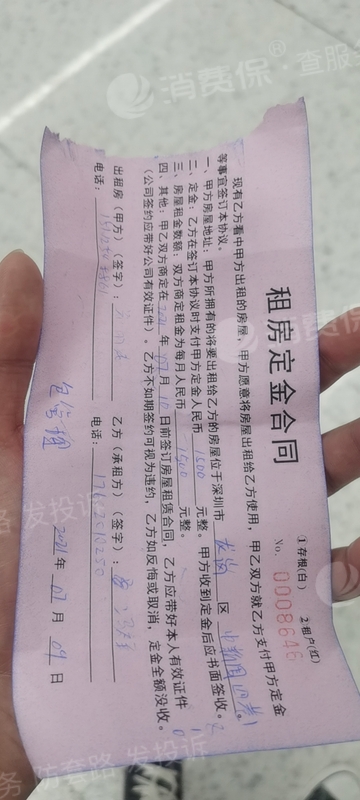 消费保 · 查服务
租房定金合同
①存根(白) ②租户(红)
No. 0008646
现有乙方看中甲方出租的房屋，甲方愿意将房屋出租给乙方使用，甲乙双方就乙方支付甲方定金
等事宜签订本协议。
一、甲方房屋地址：甲方所拥有的将要出租给乙方的房屋位于深圳市 龙岗 区
二、定金：乙方在签订本协议时支付甲方定金人民币 1500 元整。甲方收到定金后应书面签收。
三、房屋租金数额：双方商定租金为每月人民币 1500 元整。
四、其他：甲乙双方商定在 2021 年 07 月 10 日前签订房屋租赁合同，乙方应带好本人有效证件
(公司签约应带好公司有效证件)。乙方不如期签约可视为违约，乙方如反悔或取消，定金全额没收。
出租房（甲方）（签字）： 乙方（承租方）（签字）：
电话： 电话：
2021 年 07 月 09 日
消费保
防套路 发投诉